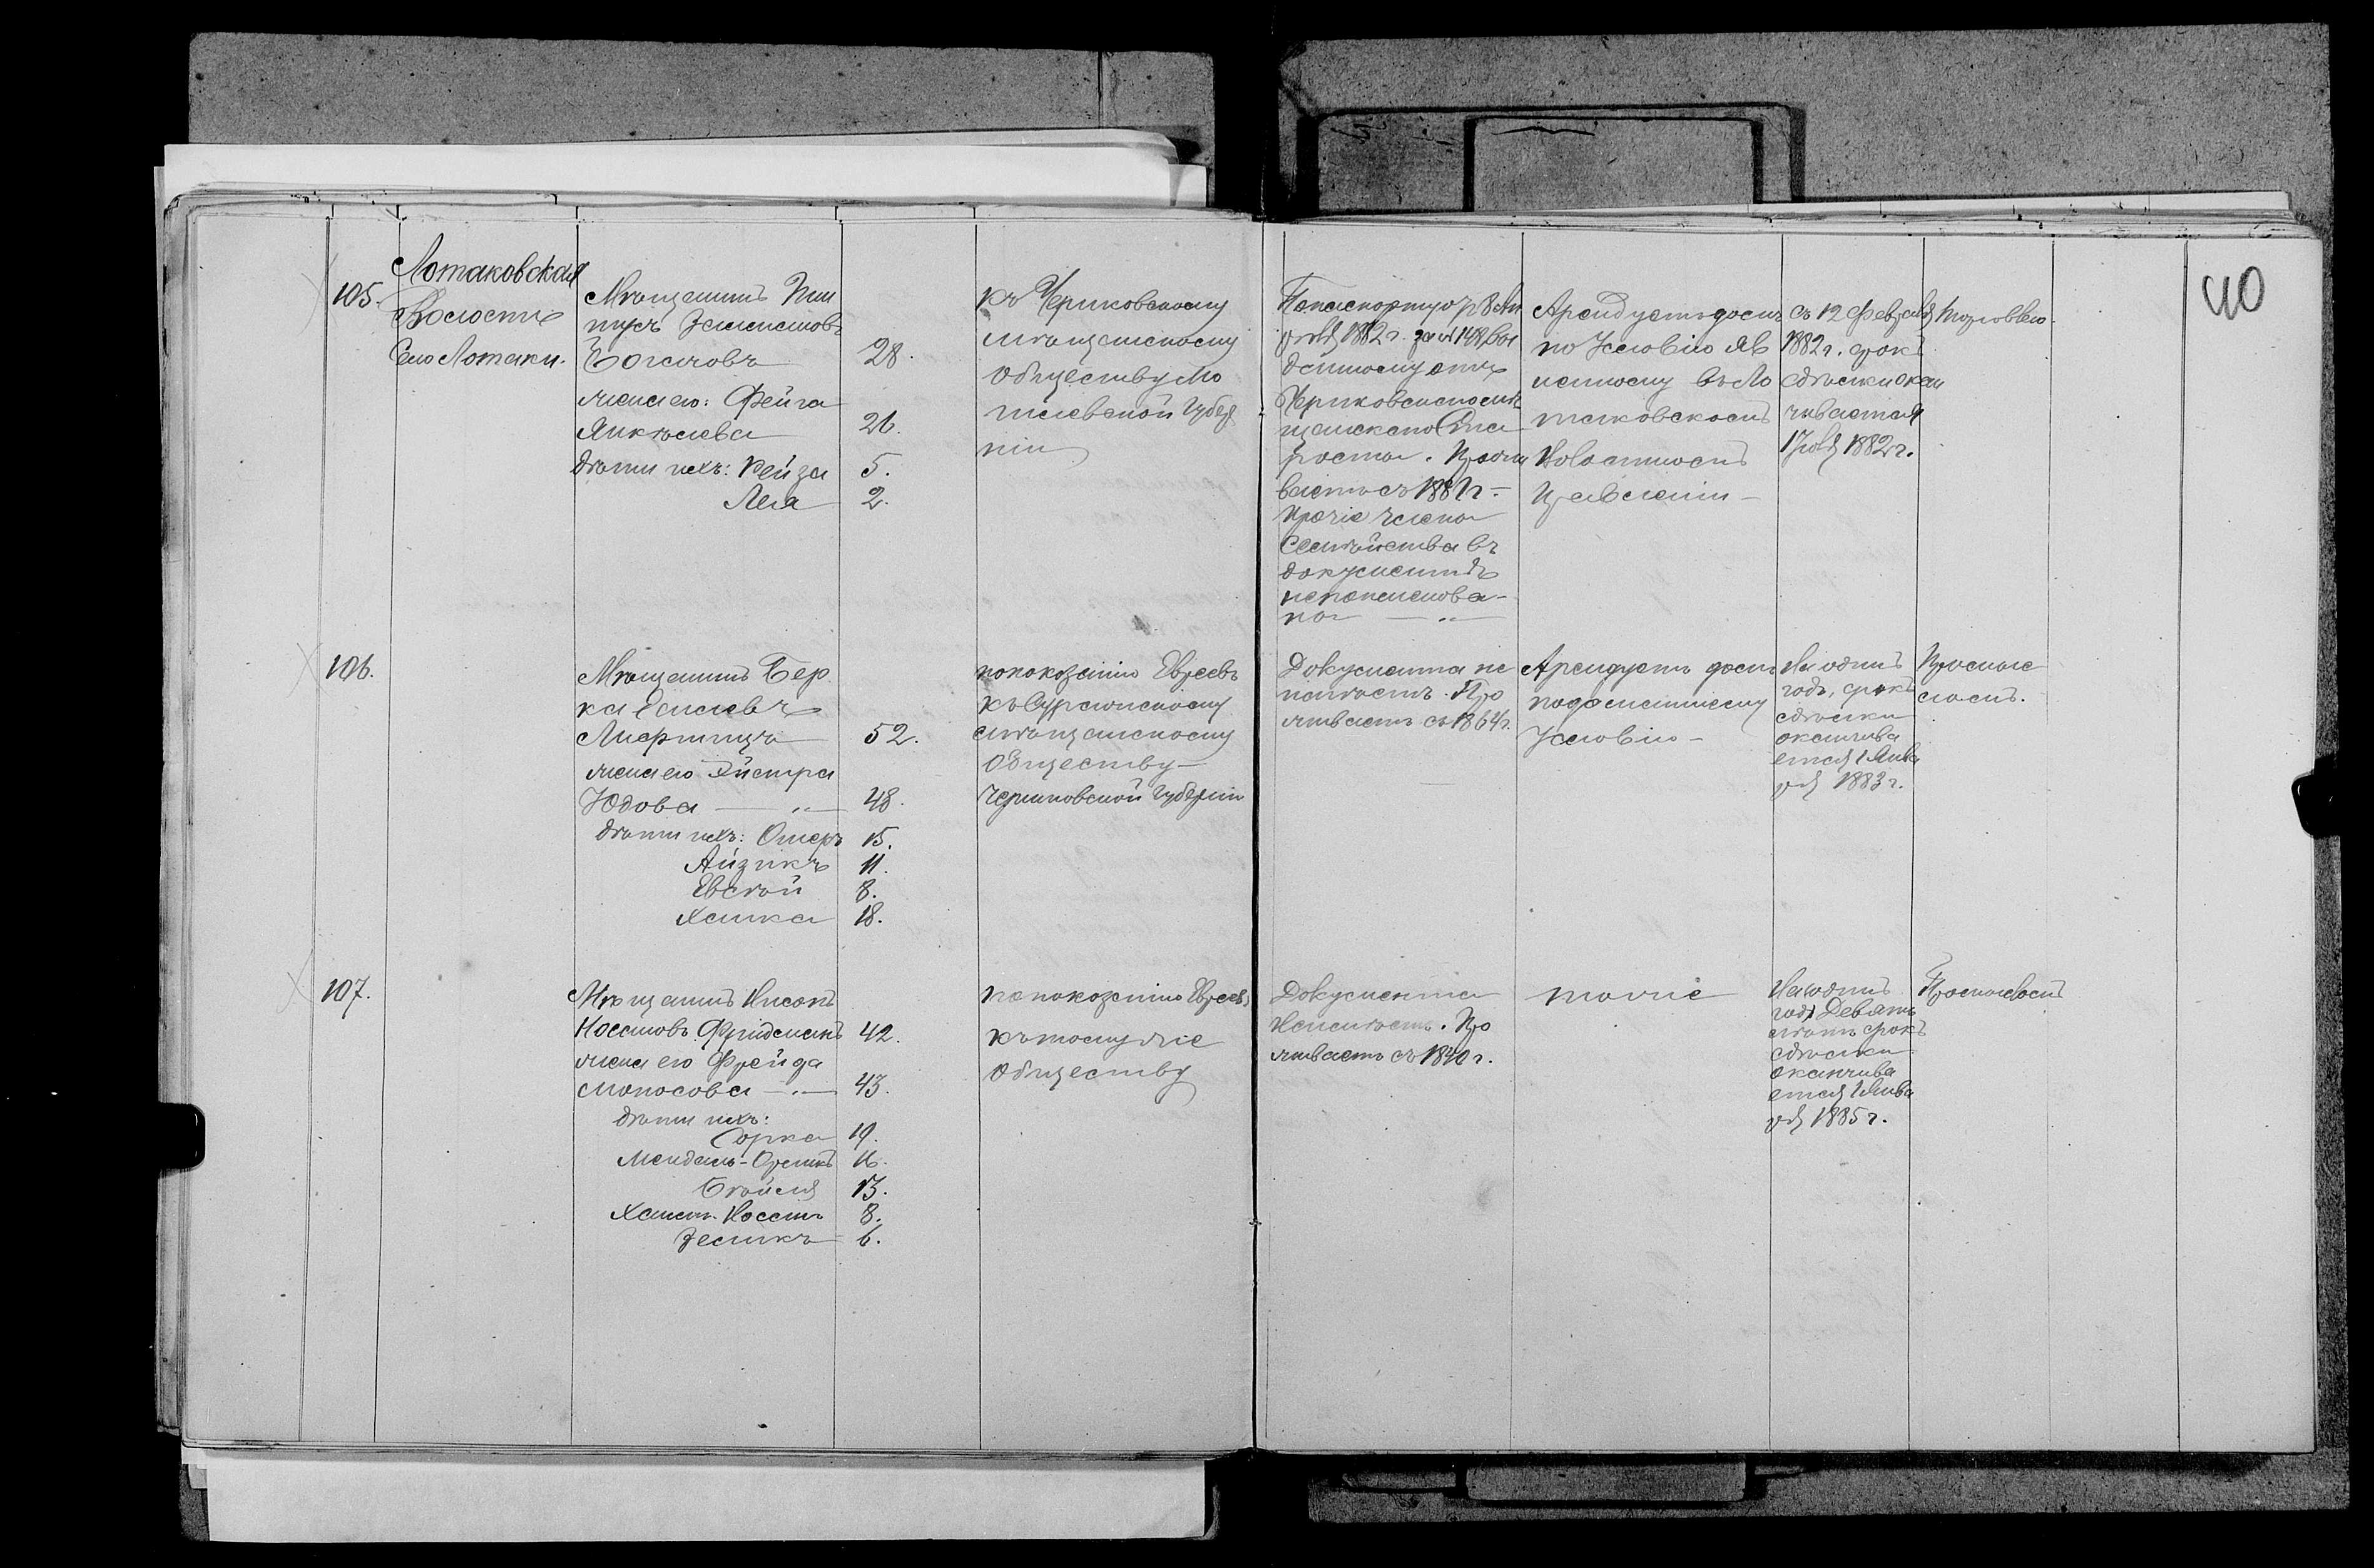 40
Лотаковская
Волость
Село Лотаки.
105.
Мѣщанинъ Пин
хусъ
28.
жена его: Фейга
Янкелева
26.
дѣти ихъ: Рейза
5.
Лея
2.
къ Чериковскому
мѣщанскому
обществу Мо
гилевской Губер
ніи
По паспорту
1882 г. за № 148 вы
данному отъ
Чериковскаго мѣ
щанскаго Ста
росты. Прожи
ваетъ съ 1881 г. —
прочіе члены
семѣйства въ
документѣ
непоименова-
ны —
Арендуетъ домъ
по Условію яв
ленному въ Ло
таковскомъ
Волостномъ
Правленіи —
съ 12 Февраля
1882 г. срокъ
сдѣлки окан
чивается
1882 г.
Торговлею.
106.
Мѣщанинъ Бер
ка
52.
жена его Эйстра
Юдова —
48.
дѣти ихъ: Ошеръ
15.
Айзикъ
11.
Евсѣй
8.
Ханка
18.
по показанію Евреевъ
къ Суражскому
мѣщанскому
Обществу —
Черниговской Губерніи
Документа не
имѣетъ. Про
живаетъ съ 1864 г.
Арендуетъ домъ
по домашнему
Условію —
На одинъ
годъ, срокъ
сдѣлки
оканчива
ется 1 Янва
ря 1883 г.
Промысло
мъ.
107.
Мѣщанинъ Нисонъ
Носоновъ Фридманъ
42.
жена его Фрейда
Моносова —
43.
дѣти ихъ:
Сорка
19.
Мендель-
16.
Бейля
13.
8.
Зеликъ
6.
по показанію Евреевъ
къ тому же
обществу
Документа
Неимѣетъ. Про
живаетъ съ 1840 г.
тоже
На одинъ
годъ Девять
мѣс. срокъ
сдѣлки
оканчива
ется 1 Янва
ря 1885 г.